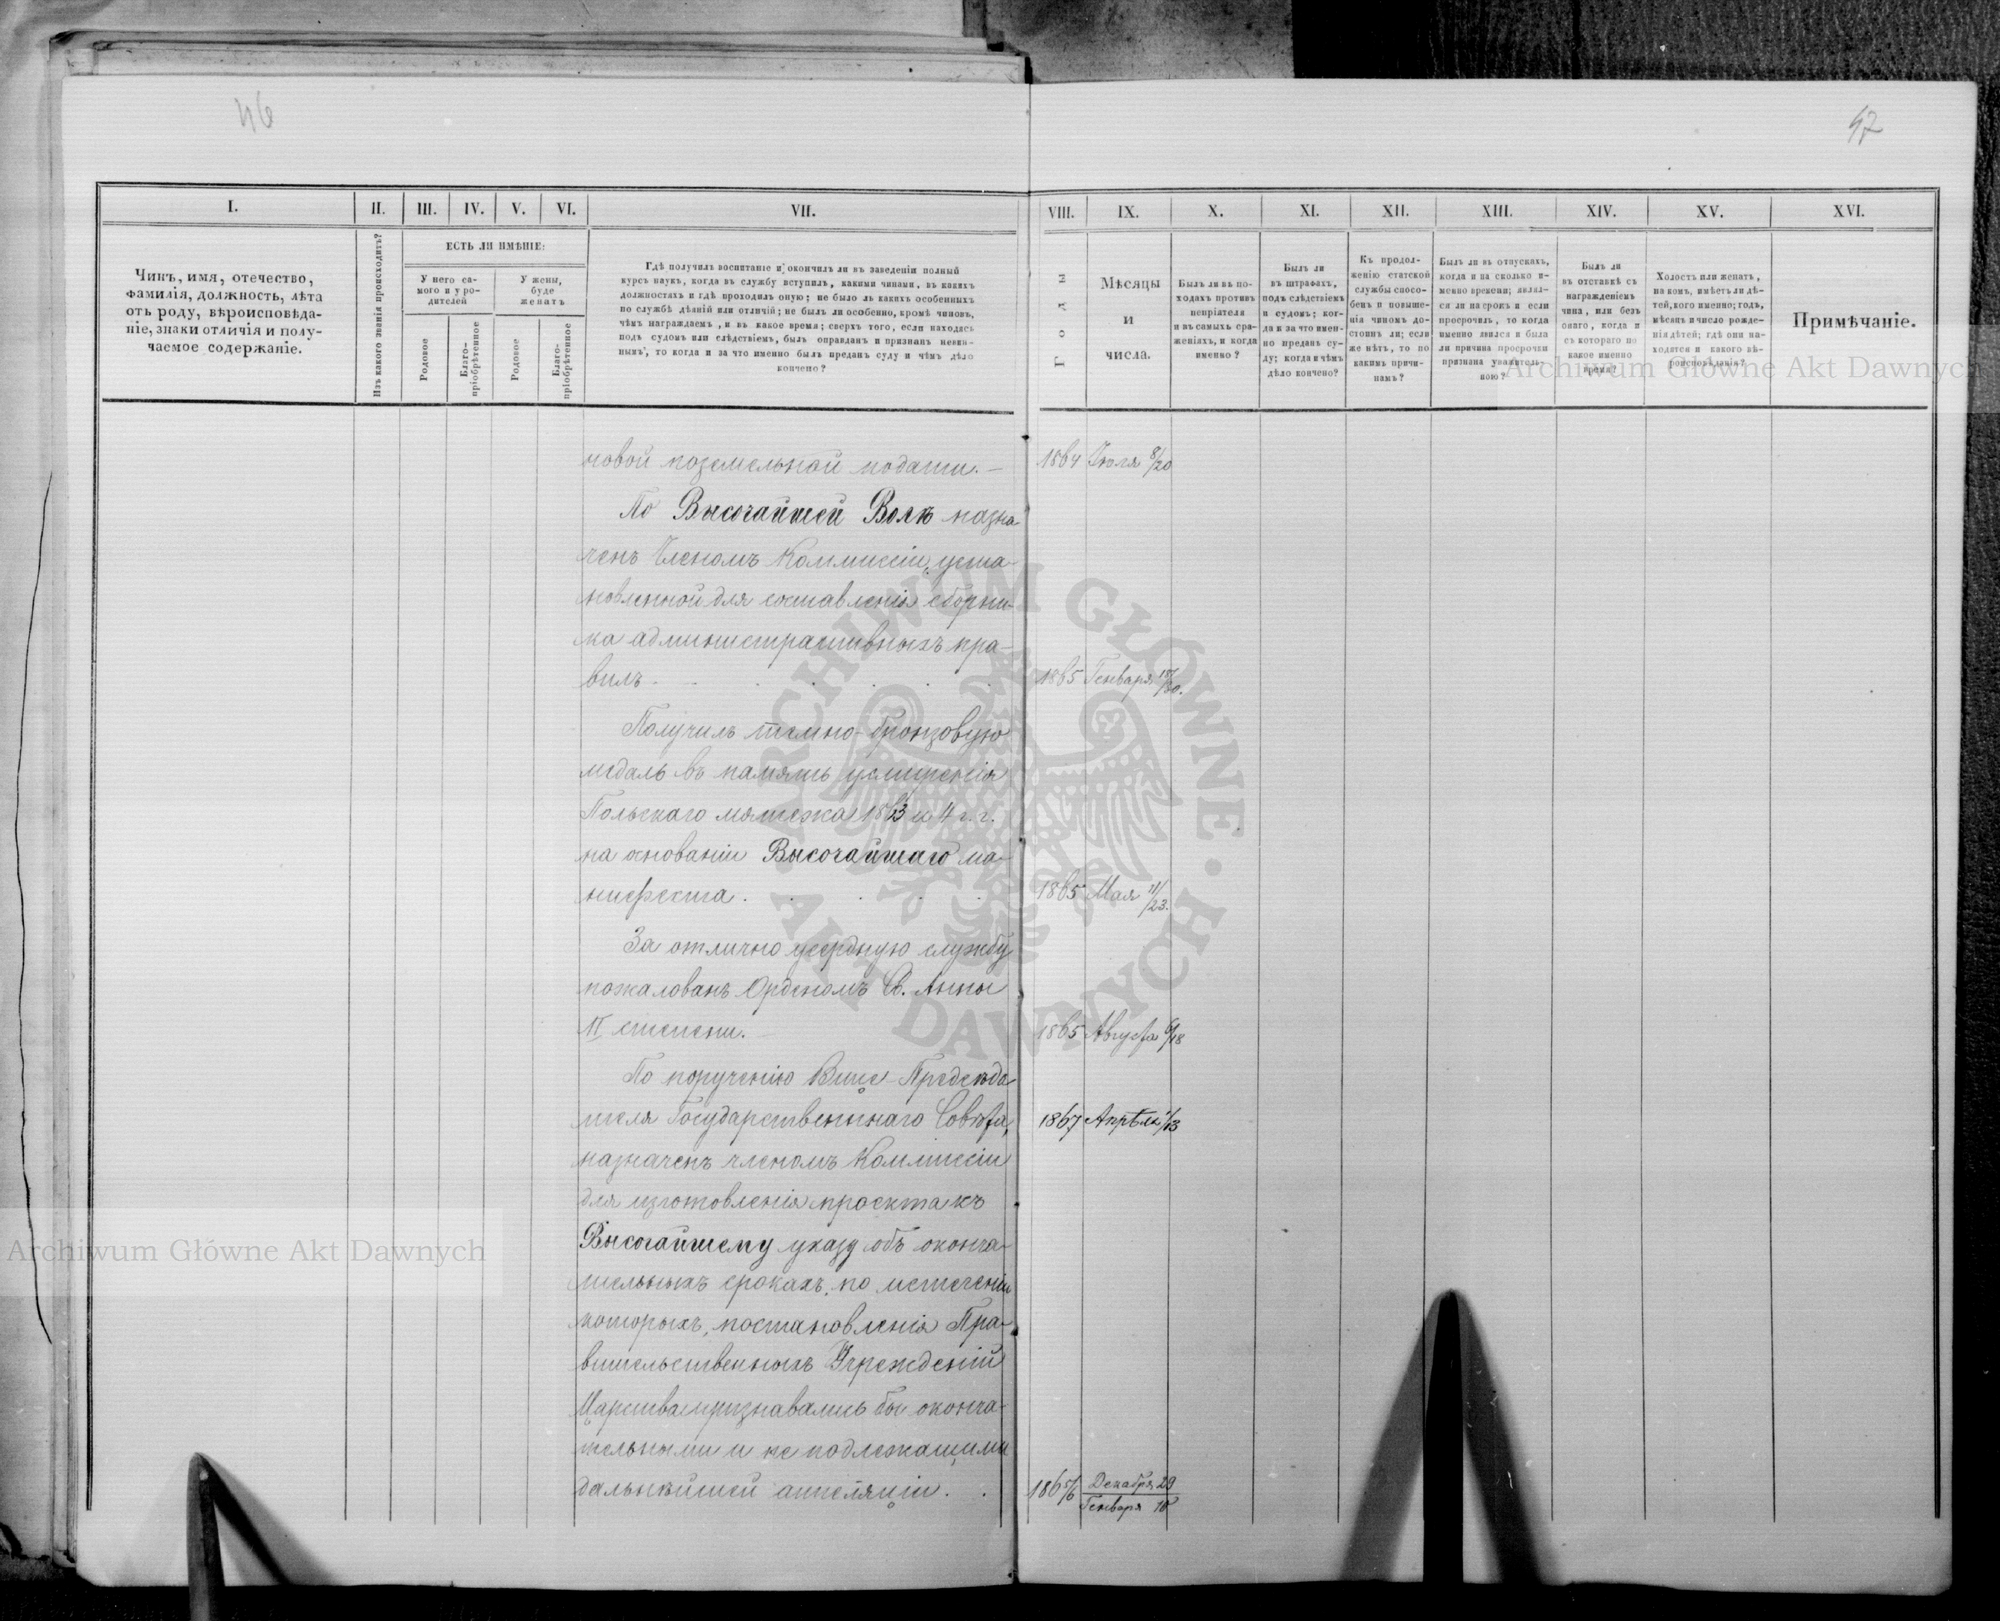 46
47
I.
II.
III.
IV.
V.
VI.
VII.
VIII.
IX.
X.
XI.
XII.
XIII.
XIV.
XV.
XVI.
Чинъ, имя, отечество,
фамилія, должность, лѣта
отъ роду, вѣроисповѣда-
ніе, знаки отличія и полу-
чаемое содержаніе.
Изъ какого званія происходитъ?
ЕСТЬ ЛИ ИМѢНІЕ:
У него са-
мого и у ро-
дителей
У жены,
буде
женатъ
Родовое
Благо-
пріобрѣтенное
Родовое
Благо-
пріобрѣтенное
Гдѣ получилъ воспитаніе и окончилъ ли въ заведеніи полный
курсъ наукъ, когда въ службу вступилъ, какими чинами, въ какихъ
должностяхъ и гдѣ проходилъ оную; не было ль какихъ особенныхъ
по службѣ дѣяній или отличій; не былъ ли особенно, кромѣ чиновъ,
чѣмъ награждаемъ, и въ какое время; сверхъ того, если находясь
подъ судомъ или слѣдствіемъ, былъ оправданъ и признанъ невин-
нымъ, то когда и за что именно былъ преданъ суду и чѣмъ дѣло
кончено?
Годы
Мѣсяцы
и
числа.
Былъ ли въ по-
ходахъ противъ
непріятеля
и въ самыхъ сра-
женіяхъ, и когда
именно?
Былъ ли
въ штрафахъ,
подъ слѣдствіемъ
и судомъ; ког-
да и за что имен-
но преданъ су-
ду; когда и чѣмъ
дѣло кончено?
Къ продол-
женію статской
службы спосо-
бенъ и повыше-
нія чиномъ до-
стоинъ ли; если
же нѣтъ, то по
какимъ причи-
намъ?
Былъ ли въ отпускахъ,
когда и на сколько и-
менно времени; являл-
ся ли на срокъ и если
просрочилъ, то когда
именно явился и была
ли причина просрочки
признана уважитель-
ною?
Былъ ли
въ отставкѣ съ
награжденіемъ
чина, или безъ
онаго, когда и
съ котораго по
какое именно
время?
Холостъ или женатъ,
на комъ, имѣетъ ли дѣ-
тей, кого именно; годъ,
мѣсяцъ и число рожде-
нія дѣтей; гдѣ они на-
ходятся и какого вѣ-
роисповѣданія?
Примѣчаніе.
новой поземельной подати. —
1864 Іюля 8/20
По Высочайшей Волѣ назна-
ченъ Членомъ Коммисіи, уста-
новленной для составленія сборни-
ка административныхъ пра-
вилъ.
1865 Генваря 18/30.
Получилъ темно-бронзовую
медаль въ память усмиренія
Польскаго мятежа 1863 и 4 г.г.
на основаніи Высочайшаго ма-
нифеста.
1865 Мая 11/23.
За отлично усердную службу
пожалованъ Орденомъ Св. Анны
II степени.
1865 Августа 6/18
По порученію Вице-Предсѣда
теля Государственнаго Совѣта,
1867 Апрѣля 1/13
назначенъ членомъ Коммисіи
для изготовленія проекта къ
Высочайшему указу объ оконча-
тельныхъ срокахъ, по истеченіи
которыхъ, постановленія Пра-
вительственныхъ Учрежденій
Царства признавались бы оконча-
тельными и не подлежащими
дальнѣйшей аппеляціи.
1865/6 Декабря 29
Генваря 10
Archiwum Główne Akt Dawnych
Archiwum Główne Akt Dawnych
ARCHIWUM GŁÓWNE · AKT DAWNYCH ·